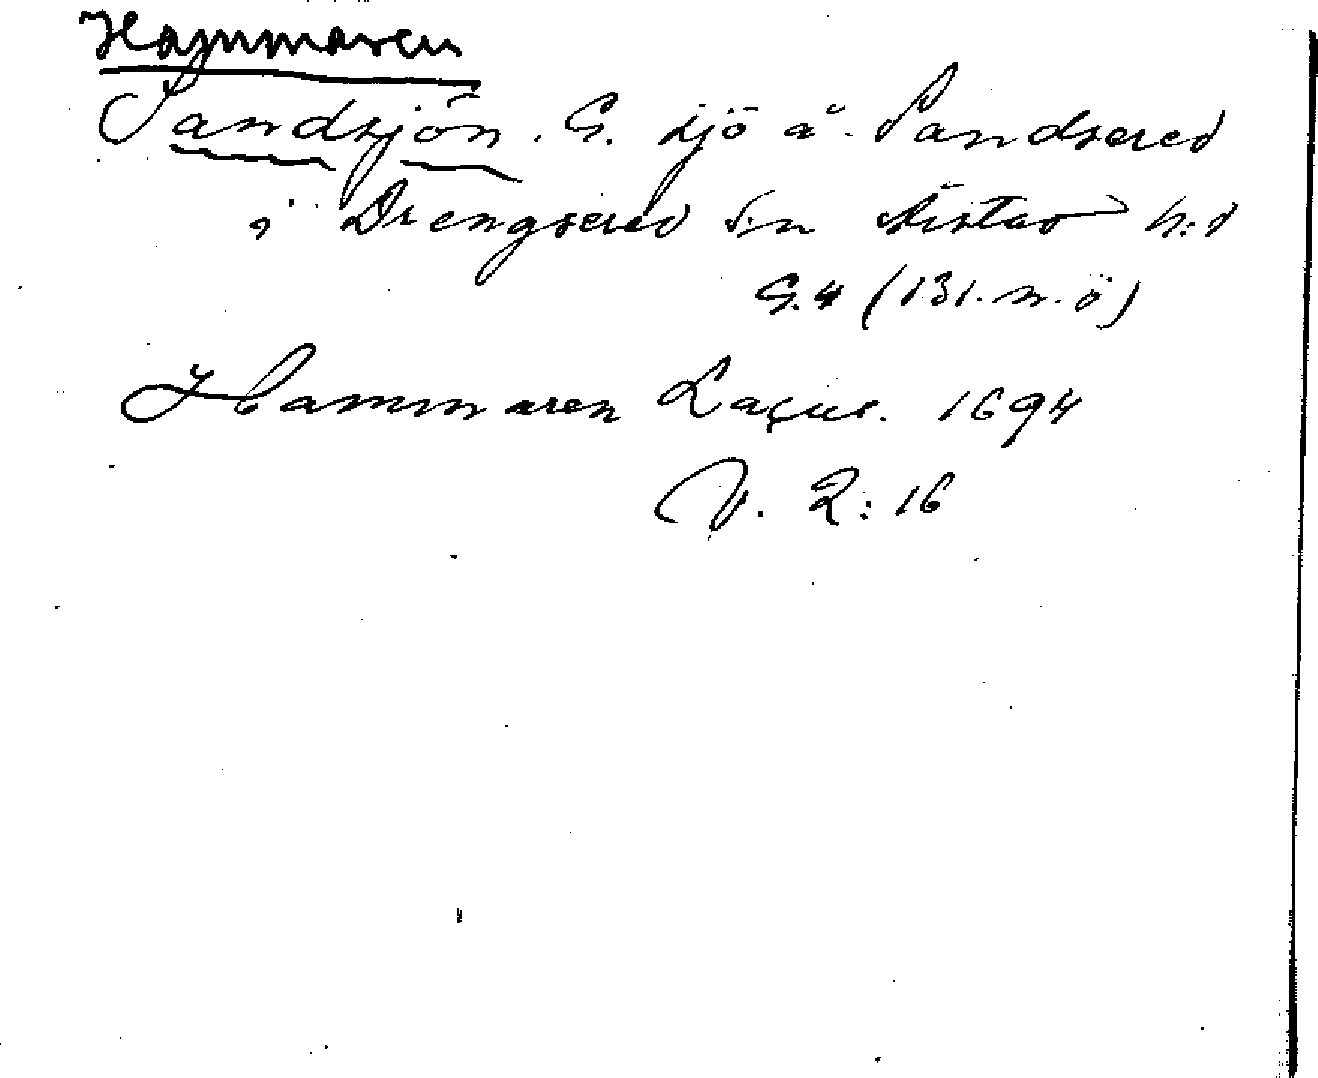 Hammaren
Sandsjön. G. sjö å. Sandsered
i Drengsered s:n Årstad h:d
G.4 (131. n. ö)
Hammaren Laçus. 1694
V. 2:16